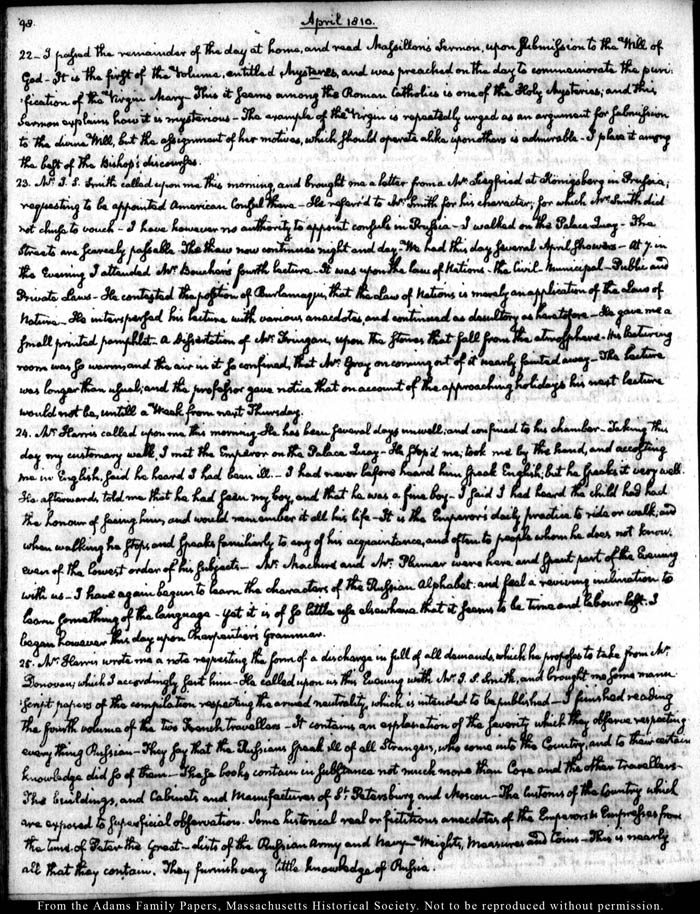 98.
April 1810.
22 - I passed the remainder of the day at home, and read Massillon's Sermon, upon Submission to the Will of
God - It is the first of the Volume, entitled Mysteres, and was preached on the day to commemorate the puri-
fication of the Virgin Mary - This it seems among the Roman Catholics is one of the Holy Mysteries; and this
Sermon explains how it is mysterious - The example of the Virgin is repeatedly urged as an argument for submission
to the divine Will, but the assignment of her motives, which should operate alike upon others is admirable - I place it among
the best of the Bishop's discourses.
23. Mr. J. S. Smith called upon me this morning, and brought me a letter from a Mr. Siegfried at Königsberg in Prussia;
requesting to be appointed American Consul there - He referr'd to Mr. Smith for his character; for which Mr. Smith did
not chuse to vouch - I have however no authority to appoint consuls in Prussia - I walked on the Palace Quay - The
Streets are scarcely passable. The thaw now continues night and day. We had this day several April showers - At 7. in
the Evening I attended Mr. Bouchen's fourth lecture - It was upon the law of Nations - the Civil - Municipal - Public and
Private Laws - He contested the position of Burlamaqui, that the Law of Nations is merely an application of the Laws of
Nature - He interspersed his lecture with various anecdotes, and continued as desultory as heretofore - He gave me a
small printed pamphlet - A dissertation of Mr. upon the Stones that fall from the atmosphere - His lecturing
room was so warm, and the air in it so confined, that Mr. Gray on coming out of it nearly fainted away - The lecture
was longer than usual; and the professor gave notice that on account of the approaching holidays his next lecture
would not be, untill a Week from next Thursday.
24. Mr. Harris called upon me this morning. He has been several days unwell; and confined to his chamber - Taking this
day my customary walk, I met the Emperor on the Palace Quay - He stop'd me; took me by the hand, and accosting
me in English, said he heard I had been ill. - I had never before heard him speak English, but he speaks it very well.
He afterwards told me that he had seen my boy, and that he was a fine boy - I said I had heard the child had had
the honour of seeing him, and would remember it all his life - It is the Emperor's daily practice to ride or walk, and
when walking he stops and speaks familiarly to any of his acquaintance, and often to people whom he does not know
even of the lowest order of his subjects - Mr. and Mr. Plumer were here and spent part of the Evening
with us - I have again begun to learn the characters of the Russian Alphabet and feel a reviving inclination to
learn something of the language - yet it is of so little use elsewhere that it seems to be time and labour lost. I
began however this day upon Charpentier's Grammar.
25. Mr. Harris wrote me a note requesting the form of a discharge in full of all demands, which he proposes to take from Mr.
Donovan; which I accordingly sent him - He called upon us this Evening with Mr. J. S. Smith, and brought me some manu-
script papers of the compilation respecting the armed neutrality, which is intended to be published - I finished reading
the fourth volume of the two French travellers - It contains an explanation of the severity which they observe respecting
every thing Russian - They say that the Russians speak ill of all Strangers, who come into the Country, and to their certain
knowledge did so of them - These books contain in substance not much more than Coxe and the other travellers -
The buildings, and Cabinets and Manufactures of St. Petersburg and Moscow - The Customs of the Country which
are exposed to superficial observation. Some historical real or fictitious anecdotes of the Emperors & Empresses from
the time of Peter the Great - Lists of the Russian Army and Navy - Weights, Measures and Coins - This is nearly
all that they contain. They furnish very little knowledge of Russia.
From the Adams Family Papers, Massachusetts Historical Society. Not to be reproduced without permission.